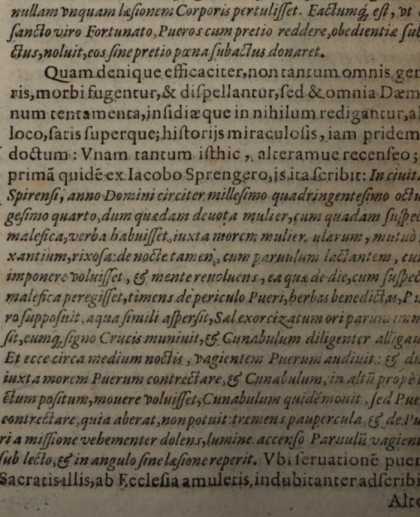 nullam vnquam læsionem Corporis pertulisset. Factumq́, est, vt
sancto viro Fortunato, Pueros cum pretio reddere, obedientiæ sub
ctus, noluit, eos sine pretio pœna subactus donaret.
Quam denique efficaciter, non tantum omnis gen
ris, morbi fugentur, & dispellantur, sed & omnia Dæm
num tentamenta, insidiæque in nihilum redigantur, al
loco, satis superque; historijs miraculosis, iam pridem
doctum: Vnam tantum isthic, alteramue recenseo;
primā quidē ex Iacobo Sprengero, is, ita scribit: In ciuit
Spirensi, anno Domini circiter millesimo quadringentesimo octu
gesimo quarto, dum quædam deuota mulier, cum quadam suspec
malefica, verba habuisset, iuxta morem mulier ularum, mutuò
xantium, rixosa: de nocte tamen, cum paruulum lactantem, cun
imponere voluisset, & mente reuoluens, ea quæ de die, cum suspec
malefica peregisset, timens de periculo Pueri, herbas benedictas, Pu
ro supposuit, aqua simili aspersit, Sal exorcizatum ori paruum
sit, cumq́, signo Crucis muniuit, & Cunabulum diligenter alligau
Et ecce circa medium noctis, vagientem Puerum audiuit: & du
iuxta morem Puerum contrectare, & Cunabulum, in altū propè l
ctum positum, mouere voluisset, Cunabulum quidē mouit, sed Pue
contrectare, quia aberat, non potuit: tremens paupercula, & de Pu
ri amissione vehementer dolens, lumine accenso Paruulū vagien
sub lecto, & in angulo sine læsione reperit. Vbi seruationē puer
Sacratis illis, ab Ecclesia amuletis, indubitanter adscribi
Alte